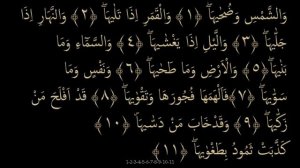 وَالشَّمْسِ وَضُحٰىهَا ﴿١﴾ وَالْقَمَرِ اِذَا تَلٰىهَا ﴿٢﴾ وَالنَّهَارِ اِذَا
جَلّٰىهَا ﴿٣﴾ وَالَّيْلِ اِذَا يَغْشٰىهَا ﴿٤﴾ وَالسَّمَآءِ وَمَا
بَنٰىهَا ﴿٥﴾ وَالْاَرْضِ وَمَا طَحٰىهَا ﴿٦﴾ وَنَفْسٍ وَمَا
سَوّٰىهَا ﴿٧﴾ فَاَلْهَمَهَا فُجُورَهَا وَتَقْوٰىهَا ﴿٨﴾ قَدْ اَفْلَحَ مَنْ
زَكّٰىهَا ﴿٩﴾ وَقَدْ خَابَ مَنْ دَسّٰىهَا ﴿١٠﴾
كَذَّبَتْ ثَمُودُ بِطَغْوٰىهَا ﴿١١﴾
1-2-3-4-5-6-7-8-9-10-11